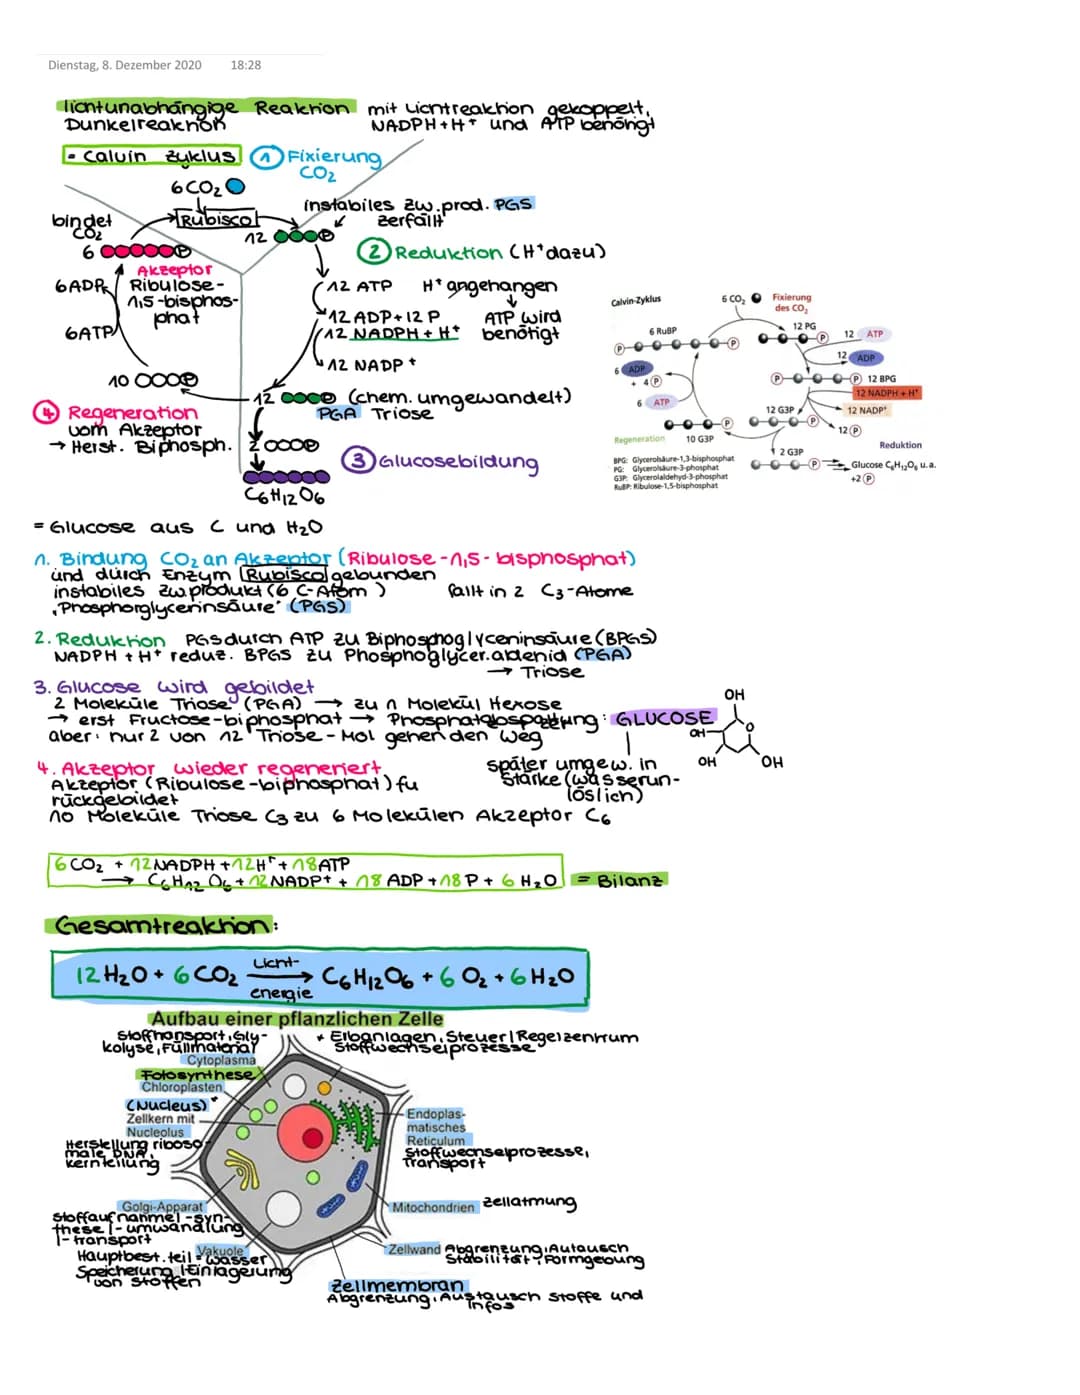 Dienstag, 8. Dezember 2020 18:28
lichtunabhängige Reaktion mit Lichtreaktion gekoppelt,
Dunkelreaktion NADPH+H⁺ und ATP benötigt
= Calvin Zyklus ① Fixierung
CO₂
6CO₂
instabiles zw.prod. PGS
zerfällt
bindet
CO₂
Rubisco
12
P
6
P
② Reduktion (H⁺dazu)
Akzeptor
Ribulose-
1,5-bisphos-
phat
6ADP
6ATP
12 ATP
H⁺ angehangen
12 ADP+12 P
ATP wird
benötigt
12 NADPH + H⁺
12 NADP⁺
10
P
12
P
(chem. umgewandelt)
PGA Triose
④ Regeneration
vom Akzeptor
→ Herst. Biphosph.
2
P
③ Glucosebildung
C6H12O6
Calvin-Zyklus
6 CO₂
Fixierung
des CO₂
6 RuBP
12 PG
12 ATP
12 ADP
P
P
P
6 ADP
+ 4 P
6 ATP
P
P 12 BPG
12 NADPH + H⁺
12 NADP⁺
12 P
12 G3P
P
P
Regeneration
10 G3P
Reduktion
2 G3P
P
Glucose C₆H₁₂O₆ u.a.
+2 P
BPG: Glycerolsäure-1,3-bisphosphat
PG: Glycerolsäure-3-phosphat
G3P: Glycerolaldehyd-3-phosphat
RuBP: Ribulose-1,5-bisphosphat
= Glucose aus C und H₂O
1. Bindung CO₂ an Akzeptor (Ribulose-1,5-bisphosphat)
und durch Enzym Rubisco gebunden
instabiles zw.produkt (6 C-Atom) fällt in 2 C₃-Atome
"Phosphorglycerinsäure" (PGS)
2. Reduktion PGS durch ATP zu Biphosphoglyceninsäure (BPGS)
NADPH + H⁺ reduz. BPGS zu Phosphoglycer.aldehid (PGA)
→ Triose
3. Glucose wird gebildet
2 Moleküle Triose (PGA) → zu 1 Molekül Hexose
→ erst Fructose-biphosphat → Phosphatabspaltung: GLUCOSE
aber: nur 2 von 12 Triose-Mol gehen den Weg
OH
OH
O
OH
OH
später umgew. in
Stärke (wasserun-
löslich)
4. Akzeptor wieder regeneriert
Akzeptor (Ribulose-biphosphat) fu
rückgebildet
10 Moleküle Triose C₃ zu 6 Molekülen Akzeptor C₆
6CO₂ + 12NADPH + 12H⁺ + 18ATP
→ C₆H₁₂O₆ + 12 NADP⁺ + 18 ADP + 18 P + 6 H₂O = Bilanz
Gesamtreaktion:
Licht-
12 H₂O + 6 CO₂ → C₆H₁₂O₆ + 6 O₂ + 6 H₂O
energie
Aufbau einer pflanzlichen Zelle
Stofftransport, Gly-
kolyse, Füllmaterial
Cytoplasma
* Erbanlagen, Steuer/Regelzentrum
Stoffwechselprozesse
Fotosynthese
Chloroplasten
(Nucleus)*
Zellkern mit
Nucleolus
Herstellung riboso-
male DNA,
Kernteilung
Endoplas-
matisches
Reticulum
Stoffwechselprozesse,
Transport
Golgi-Apparat
Stoffaufnahme/-syn-
these/-umwandlung
/-transport
Mitochondrien Zellatmung
Vakuole
Hauptbest.teil = Wasser
Speicherung/Einlagerung
von Stoffen
Zellwand Abgrenzung, Autausch
Stabilität, Formgebung
Zellmembran
Abgrenzung, Austausch Stoffe und
Infos